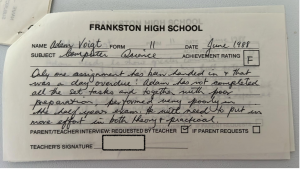 FRANKSTON HIGH SCHOOL
NAME Adam Voigt FORM 11 DATE June 1988
SUBJECT Computer Science ACHIEVEMENT RATING F
Only one assignment has been handed in & that
was a day overdue! Adam has not completed
all the set tasks and together with poor
preparation, performed very poorly in
the half year exam. He will need to put in
more effort in both theory & practical.
PARENT/TEACHER INTERVIEW: REQUESTED BY TEACHER ✓ IF PARENT REQUESTS
TEACHER'S SIGNATURE